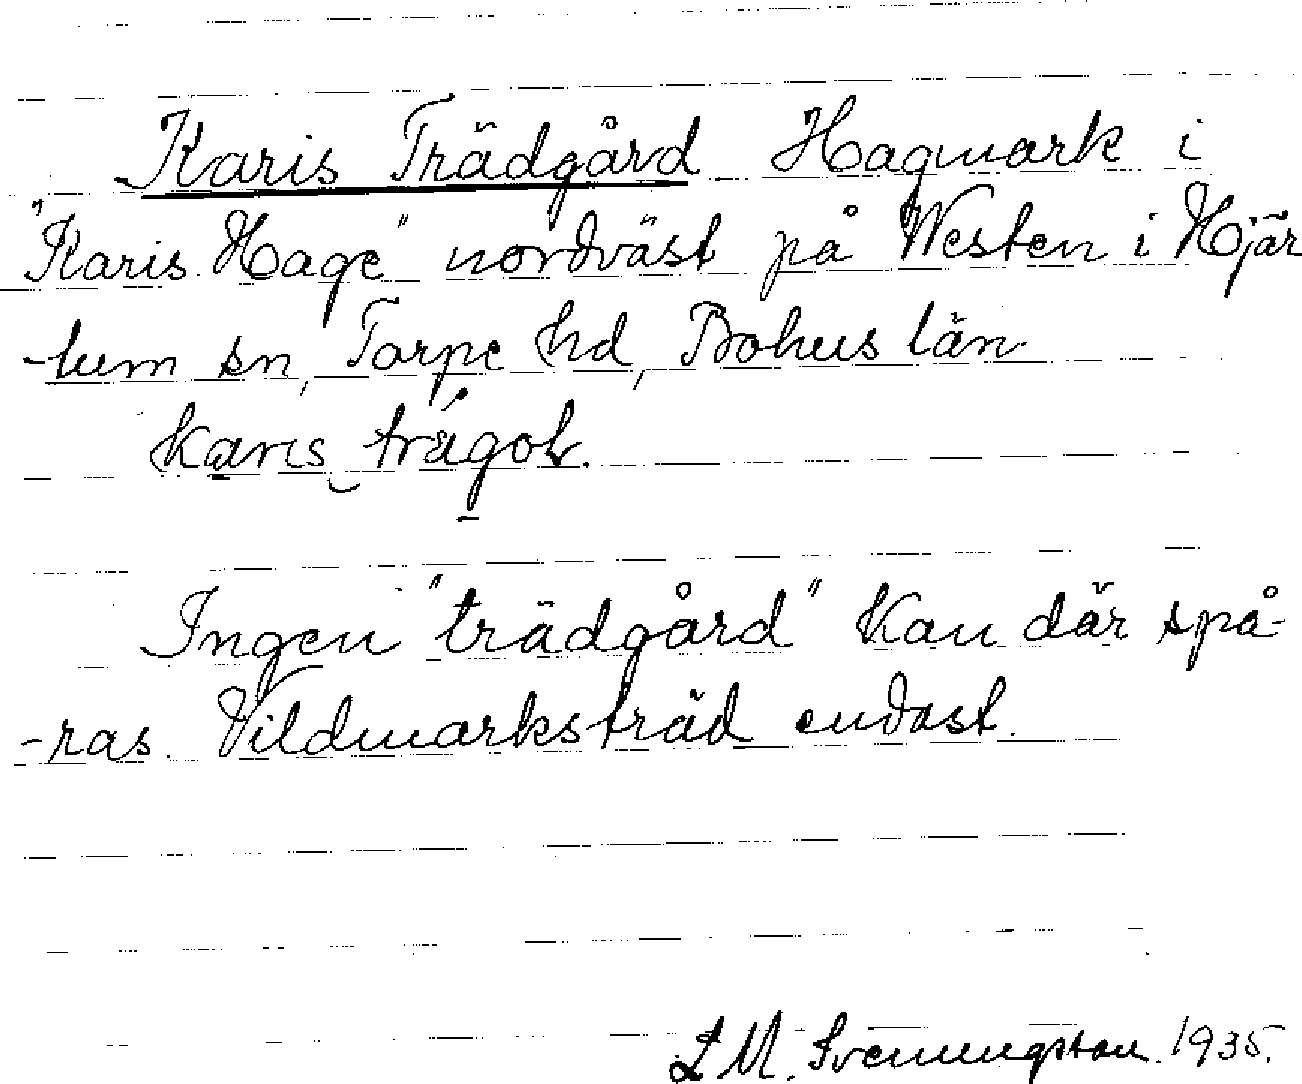 Karis Trädgård Hagmark i
"Karis Hage" nordväst på Westen i Hjär
-tum sn, Torpe hd, Bohus län
karis trágoḷ.
Ingen "trädgård" kan där spå-
-ras. Vildmarksträd endast.
L M. Svenungsson. 1935.